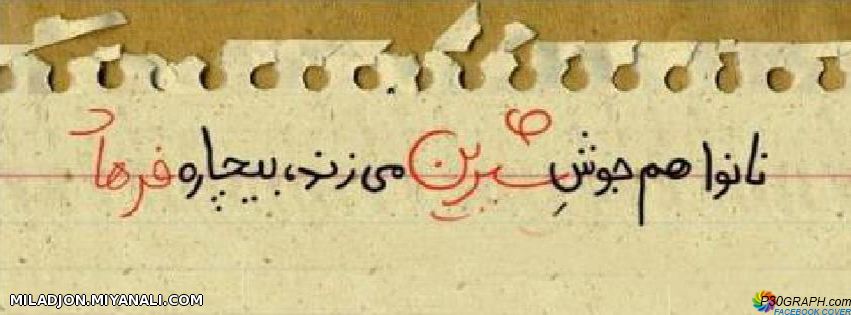 نانوا هم جوشِ شیرین می‌زند، بیچاره فرهاد
MILADJON.MIYANALI.COM
P30GRAPH.com
FACEBOOK COVER